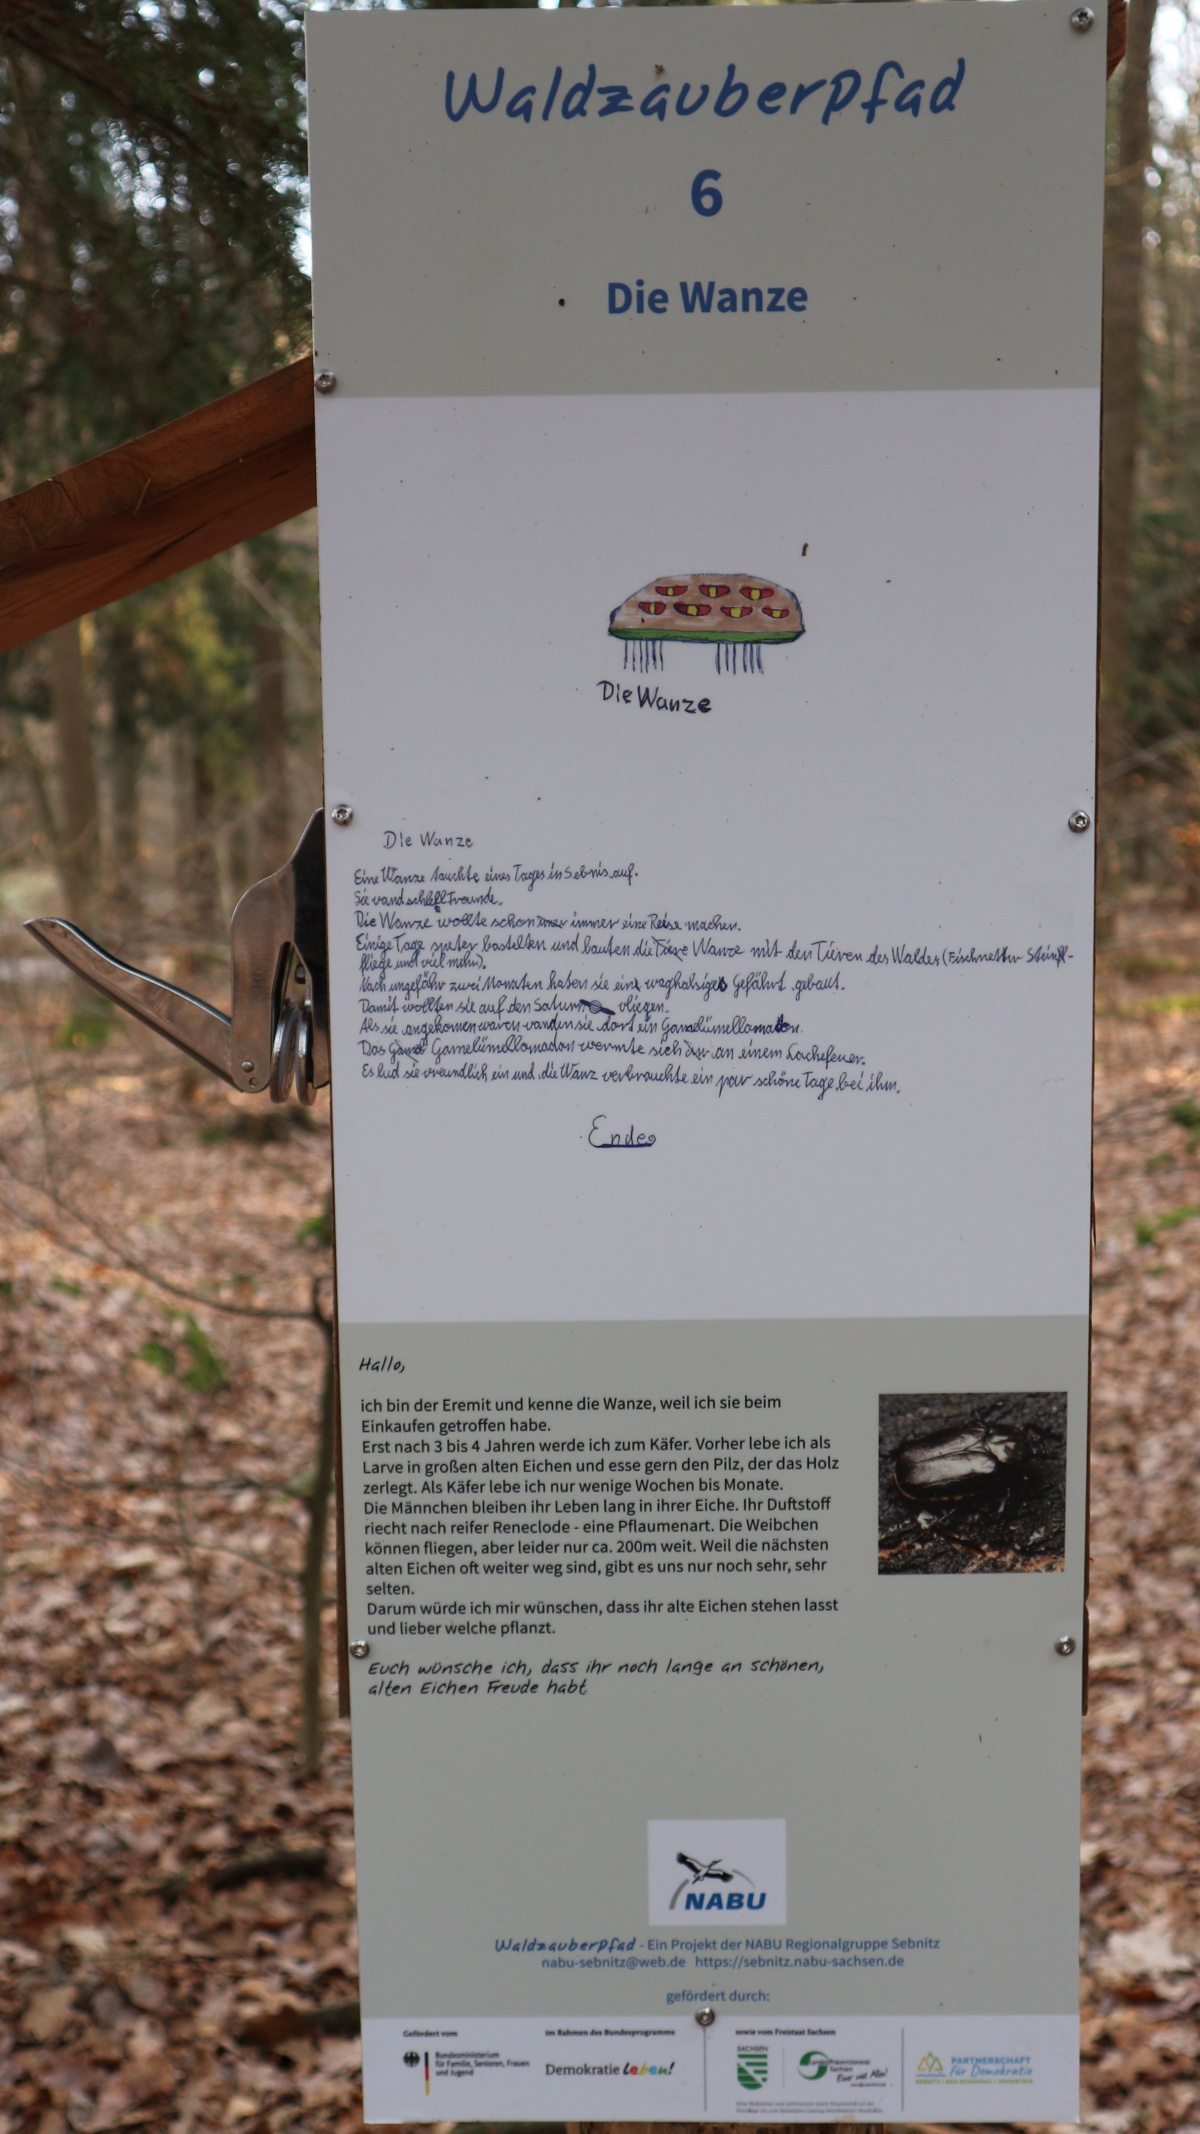 Waldzauberpfad
6
Die Wanze
Die Wanze
Die Wanze
Eine Wanze tauchte eines Tages in Sebnis auf.
Sie vand schell Freunde.
Die Wanze wollte schon immer eine Reise machen.
Einige Tage speter bastelten und bauten die Wanze mit den Tieren des Waldes (Eischnetter Steinfl-
fliege und viel mehr).
Nach ungefähr zwei Monaten haben sie ein waghalsiges Gefährt gebaut.
Damit wollten sie auf den Saturn vliegen.
Als sie angekomen waren vanden sie dort ein Gamelümellomadon.
Das Gamelümellomadon wermte sich an einem Lachefeuer.
Es lud sie vreundlich ein und die Wanz verbrauchte ein par schöne Tage bei ihm.
Ende
Hallo,
ich bin der Eremit und kenne die Wanze, weil ich sie beim
Einkaufen getroffen habe.
Erst nach 3 bis 4 Jahren werde ich zum Käfer. Vorher lebe ich als
Larve in großen alten Eichen und esse gern den Pilz, der das Holz
zerlegt. Als Käfer lebe ich nur wenige Wochen bis Monate.
Die Männchen bleiben ihr Leben lang in ihrer Eiche. Ihr Duftstoff
riecht nach reifer Reneclode - eine Pflaumenart. Die Weibchen
können fliegen, aber leider nur ca. 200m weit. Weil die nächsten
alten Eichen oft weiter weg sind, gibt es uns nur noch sehr, sehr
selten.
Darum würde ich mir wünschen, dass ihr alte Eichen stehen lasst
und lieber welche pflanzt.
Euch wünsche ich, dass ihr noch lange an schönen,
alten Eichen Freude habt
NABU
Waldzauberpfad - Ein Projekt der NABU Regionalgruppe Sebnitz
nabu-sebnitz@web.de https://sebnitz.nabu-sachsen.de
gefördert durch:
Gefördert vom
Bundesministerium
für Familie, Senioren, Frauen
und Jugend
im Rahmen des Bundesprogramms
Demokratie Leben!
sowie vom Freistaat Sachsen
SACHSEN
Landespräventionsrat
Sachsen
Einer mit Allen!
PARTNERSCHAFT
für Demokratie